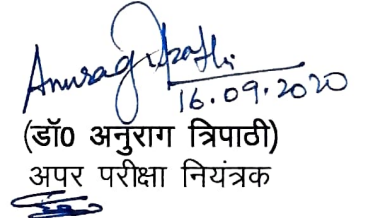 Anurag Tripathi
16.09.2020
(डॉ0 अनुराग त्रिपाठी)
अपर परीक्षा नियंत्रक